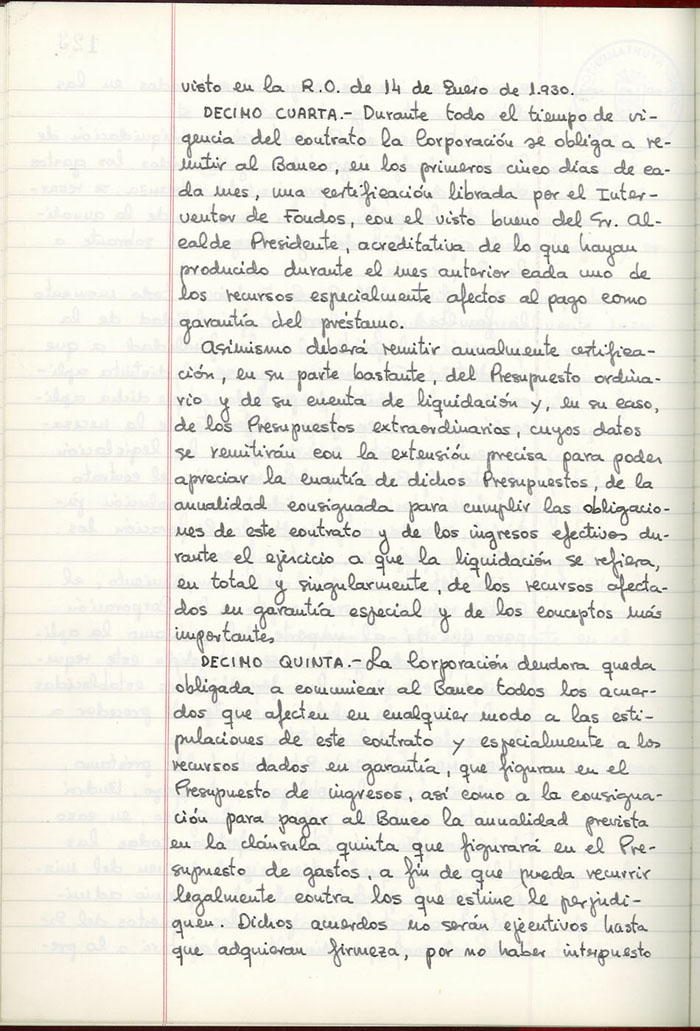 visto en la R.O. de 14 de Enero de 1.930.
DECIMO CUARTA.- Durante todo el tiempo de vi-
gencia del contrato la Corporación se obliga a re-
mitir al Banco, en los primeros cinco días de ca-
da mes, una certificación librada por el Inter-
ventor de Fondos, con el visto bueno del Sr. Al-
calde Presidente, acreditativa de lo que hayan
producido durante el mes anterior cada uno de
los recursos especialmente afectos al pago como
garantía del préstamo.
Asimismo deberá remitir anualmente certifica-
ción, en su parte bastante, del Presupuesto ordina-
rio y de su cuenta de liquidación y, en su caso,
de los Presupuestos extraordinarios, cuyos datos
se remitirán con la extensión precisa para poder
apreciar la cuantía de dichos Presupuestos, de la
anualidad consignada para cumplir las obligacio-
nes de este contrato y de los ingresos efectivos du-
rante el ejercicio a que la liquidación se refiera,
en total y singularmente, de los recursos afecta-
dos en garantía especial y de los conceptos más
importantes.
DECIMO QUINTA.- La Corporación deudora queda
obligada a comunicar al Banco todos los acuer-
dos que afecten en cualquier modo a las esti-
pulaciones de este contrato y especialmente a los
recursos dados en garantía, que figuran en el
Presupuesto de ingresos, así como a la consigna-
ción para pagar al Banco la anualidad prevista
en la cláusula quinta que figurará en el Pre-
supuesto de gastos, a fin de que pueda recurrir
legalmente contra los que estime le perjudi-
quen. Dichos acuerdos no serán ejecutivos hasta
que adquieran firmeza, por no haber interpuesto